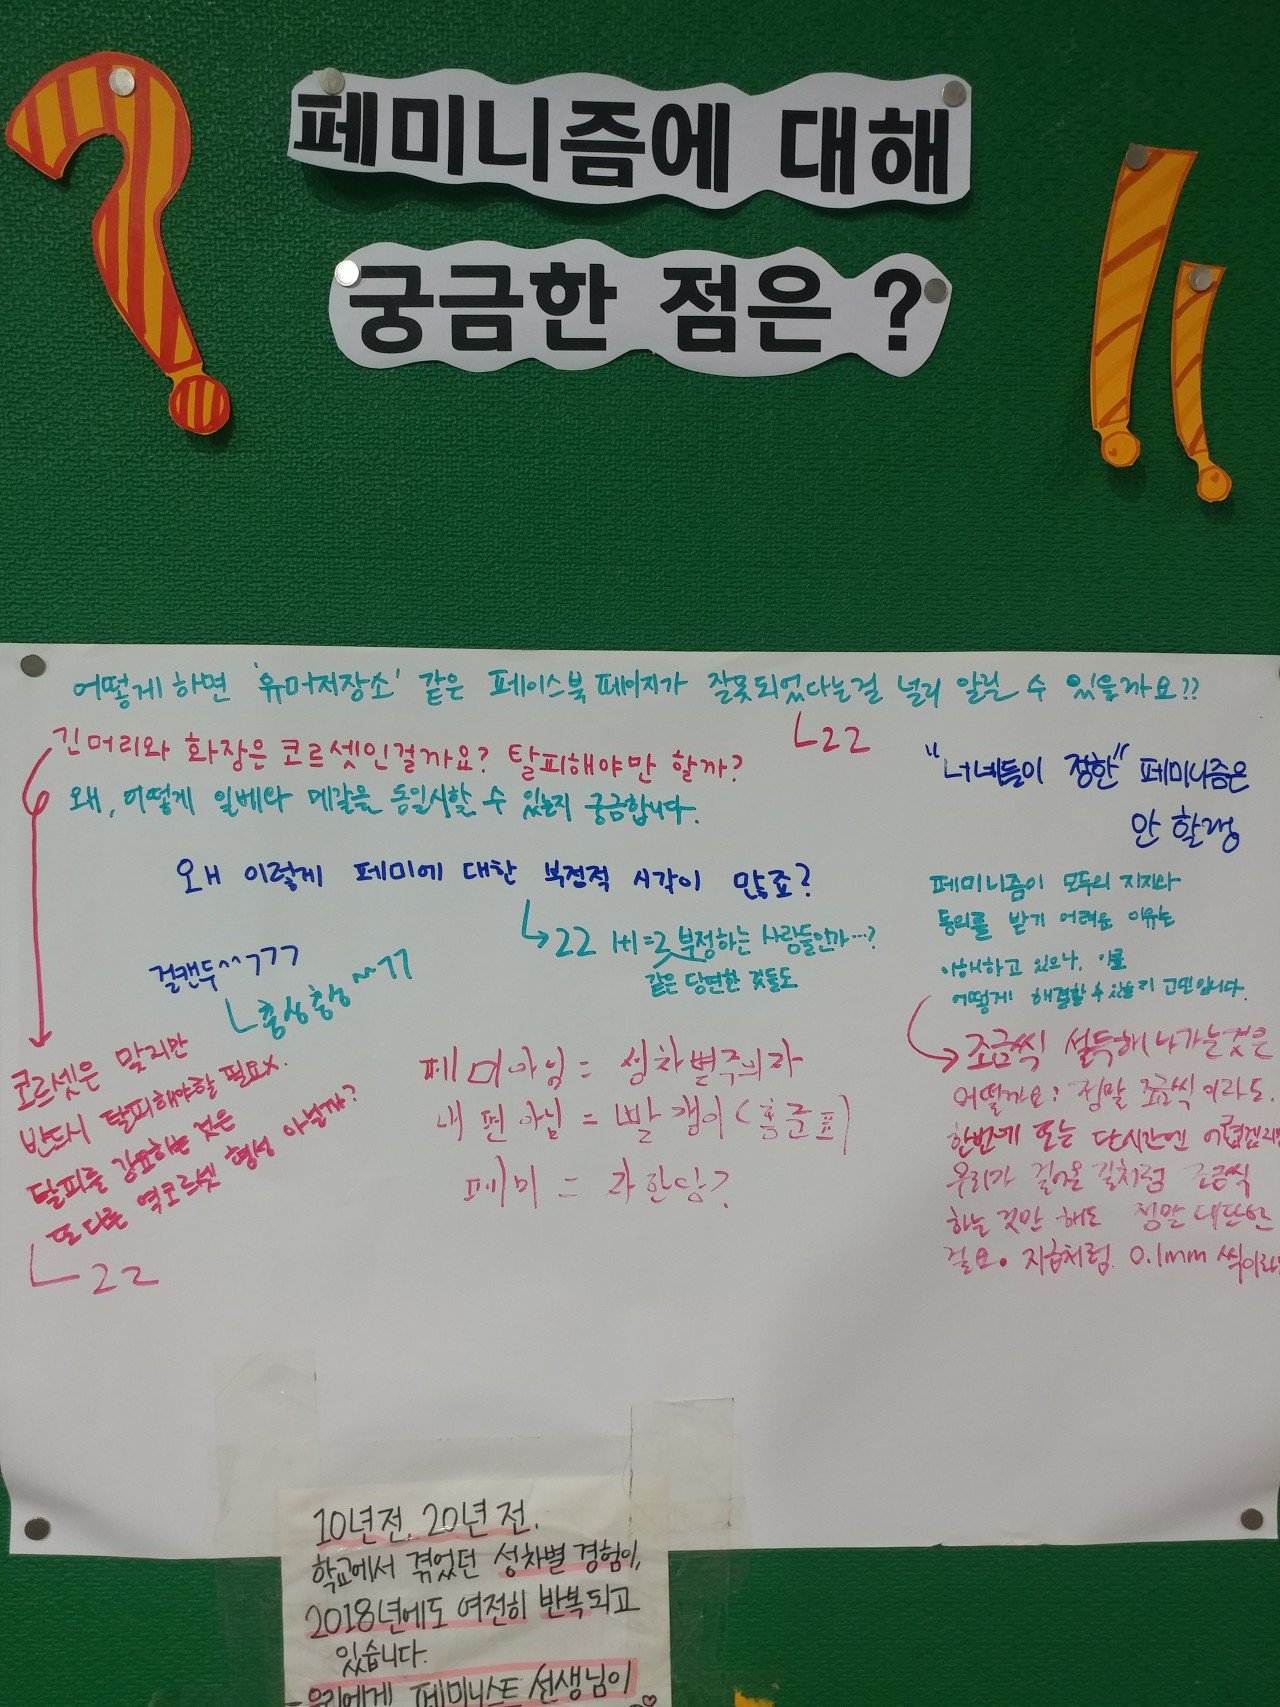 페미니즘에 대해
궁금한 점은 ?
어떻게 하면 '유머저장소' 같은 페이스북 페이지가 잘못되었다는걸 널리 알릴 수 있을까요??
22
긴머리와 화장은 코르셋인걸까요? 탈피해야만 할까?
왜, 어떻게 일베와 메갈을 동일시할 수 있는지 궁금합니다.
"너네들이 정한" 페미니즘은
안 할랭
왜 이렇게 페미에 대한 부정적 시각이 많죠?
22 1+1=2 부정하는 사람들인가…?
같은 당연한 것들도
걸캔두^^ㄱㄱㄱ
충성충성^^77
페미니즘이 모두의 지지와
동의를 받기 어려운 이유는
이해하고 있으나, 이를
어떻게 해결할 수 있을지 고민입니다.
조금씩 설득해 나가는것은
어떨까요? 정말 조금씩 이라도.
한번에 또는 단시간엔 어렵겠지만
우리가 걸어온 길처럼 조금씩
하는 것만 해도 정말 대단한
걸요. 지금처럼 0.1mm 씩이라도
코르셋은 말리지만
반드시 탈피해야할 필요x.
탈피를 강요하는 것은
또 다른 역코르셋 형성 아닐까?
22
페미아님 = 성차별주의자
내 편 아님 = 빨갱이 (홍준표)
페미 = 자한당?
10년전, 20년 전.
학교에서 겪었던 성차별 경험이,
2018년에도 여전히 반복되고
있습니다.
우리에게 페미니스트 선생님이